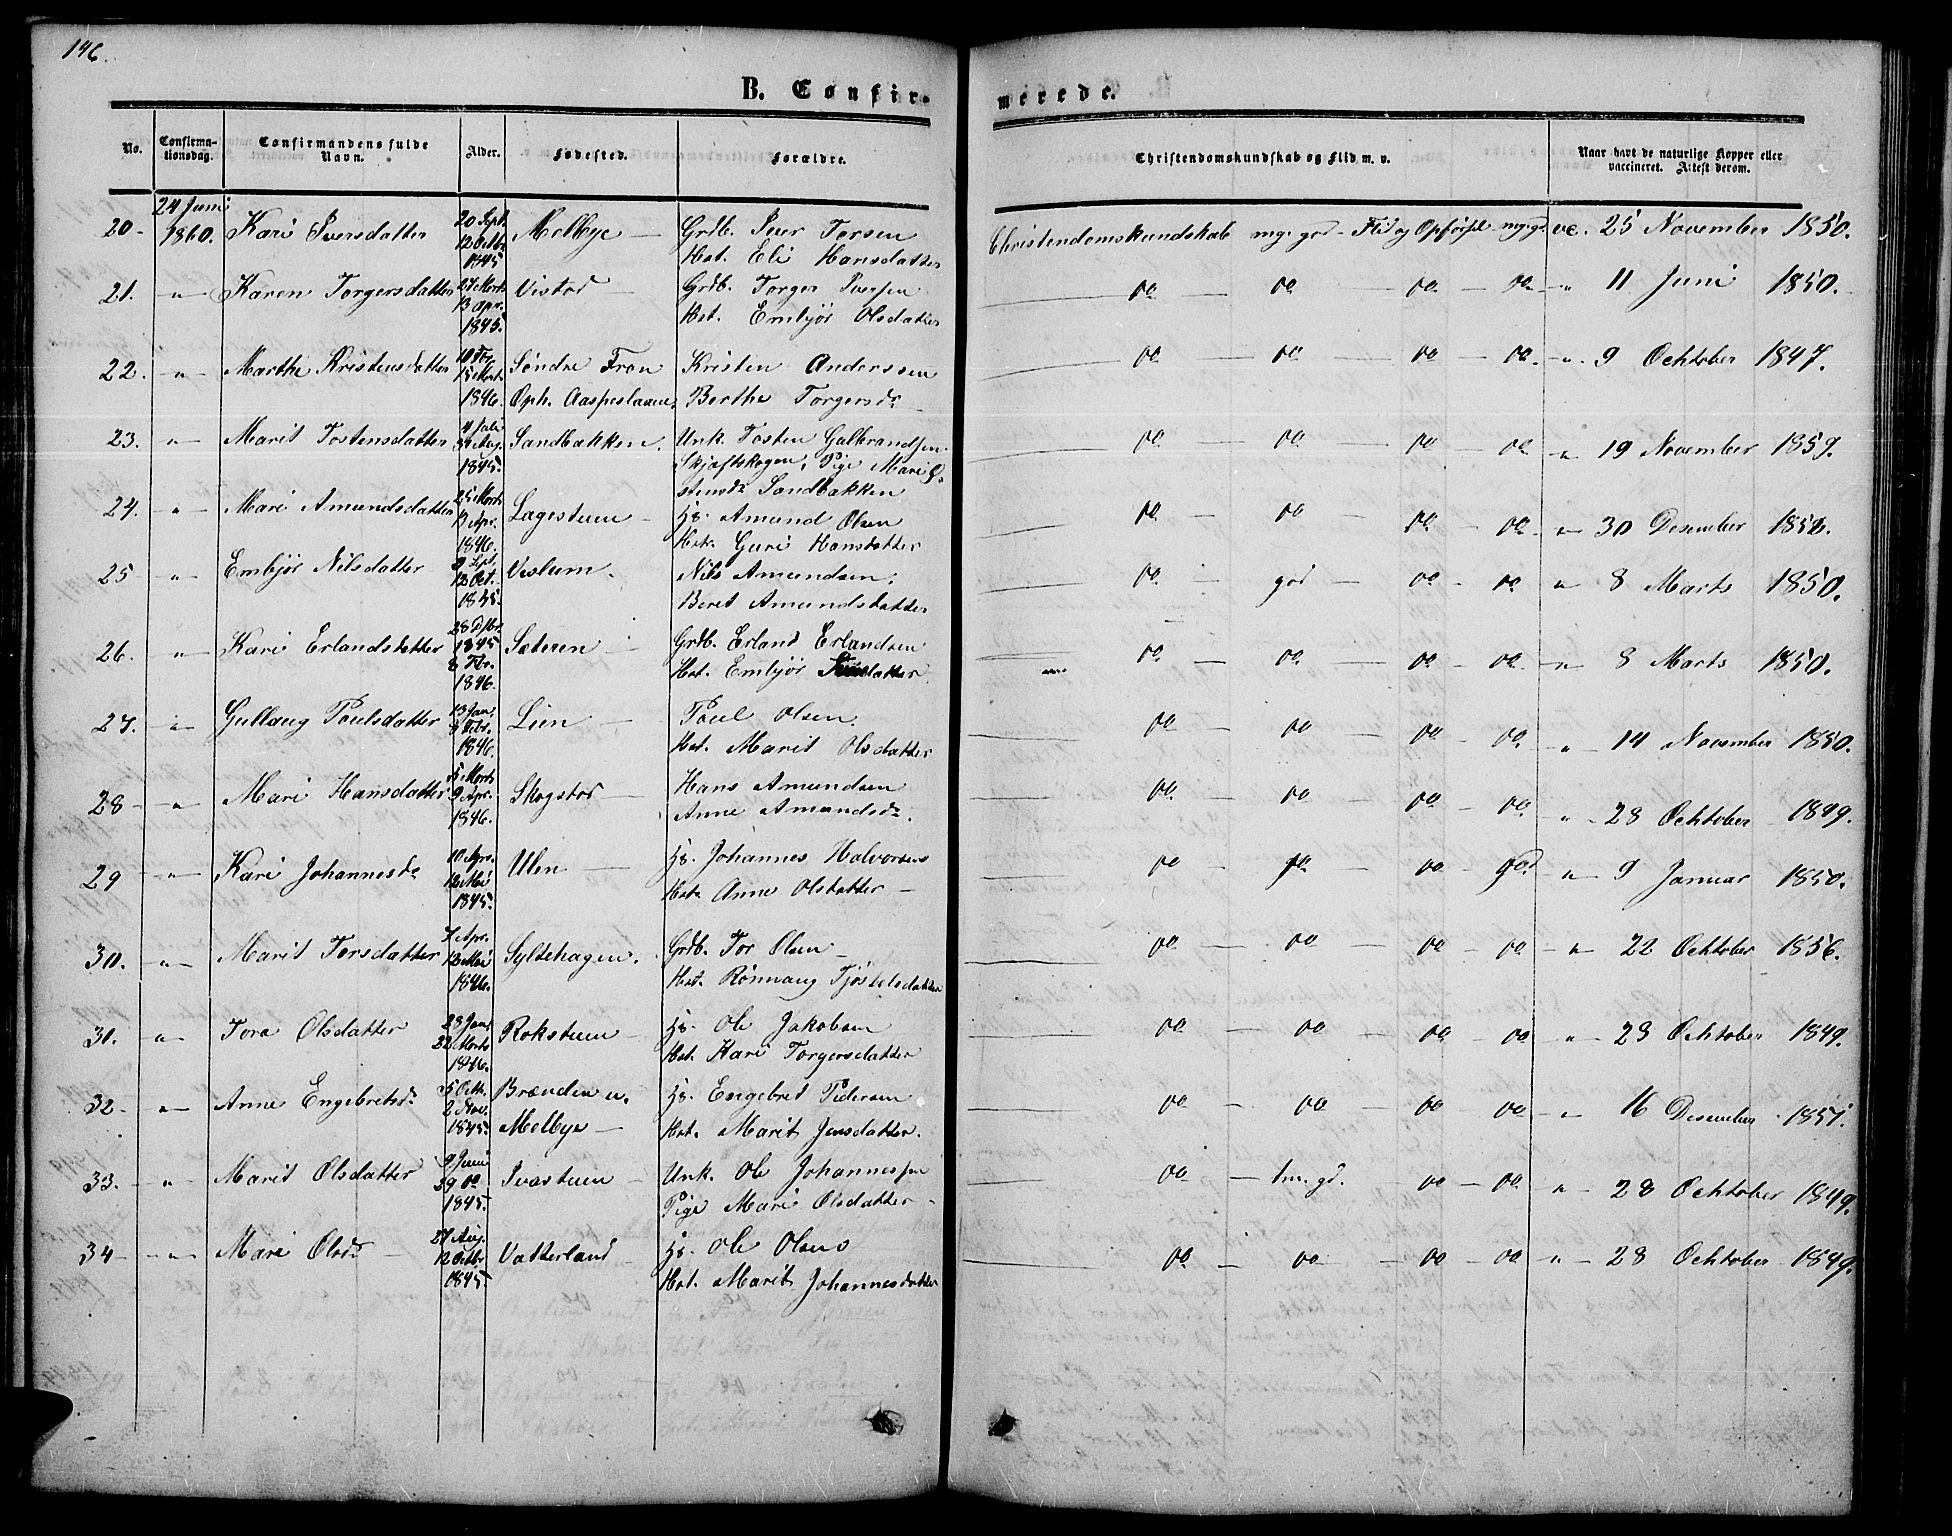 146.
B. Confirmerede.
No. Confirmationsdag. Confirmandens fulde Navn. Alder. Fødested. Forældre. Christendomskundskab og Flid m. v. Naar havt de naturlige Kopper eller vaccineret. Attest derom.
24 Juni
20 - 1860. Kari Iversdatter 20 Sept. Melbye — Grdb. Iver Torsen Christendomskundskab mg. god - Flid og Opförsel mg. g. vc. 25 November 1850.
12 Octbr. 1845 Hst. Eli Hansdatter
21. " Karen Torgersdatter 27 Marts Vistad — Grdb. Torger Iversen do — do — do — do - " 11 Juni 1850.
13 Apr. 1845. Hst. Embjör Olsdatter
22. " Marthe Kristensdatter 10 Fbr. Söndre Fron Kristen Anderssen do — do — do — do - " 9 Ochtober 1847.
15 Marts 1846. Oph. Aaspeslaaen. Berthe Torgersdr
23. " Marit Tostensdatter 4 Juli Sandbakken. Unk. Tosten Gulbrandsen do — do — do — do " 19 November 1859.
Aug. 1845. Skjæftskogen, Pige Mari O-
stensdr Sandbakken
24. " Mari Amundsdatter 25 Marts Lagestuen — Hs. Amund Olsen do — do — do — do - " 30 Desember 1850.
Apr. 1846. Hst. Guri Hansdatter
25 " Embjör Nilsdatter Sept. Veslum. Nils Amundsen. do - god — do - do " 8 Marts 1850.
12 Oct. 1845. Beret Amundsdatter
26. " Kari Erlandsdatter 28 Dbr. 1845 Sæteren — Grdb. Erland Erlandsen do — do — do — do - " 8 Marts 1850.
8 Fbr. 1846. Hst. Embjör
27. " Gullaug Poulsdatter 13 Jan. Lien — Poul Olsen. do — do — do — do. " 14 November 1850.
8 Febr. 1846. Hst. Marit Olsdatter
28 - " Mari Hansdatter 5 Marts Skogstad — Hans Amundsen do. — do — do — do. " 28 Ochtober 1849.
9 Apr. 1846. Anne Amundsdr.
29 " Kari Johannesdr 10 Apr. Ulen — Hs. Johannes Halvorsen do — do — do — god " 9 Januar 1850.
12 Mai 1845. Hst. Anne Olsdatter —
30. " Marit Torsdatter 7 Apr. Syltehagen. Grdb. Tor Olsen — do — do — do — do - " 22 Ochtober 1856.
12 Mai 1846. Hst. Rönnaug Tjöstelsdatter
31. " Tora Olsdatter 28 Jan. Rokstuen — Hs. Ole Jakobsen do — do — do — do " 28 Ochtober 1849.
22 Marts 1846. Hst. Kari Torgersdatter
32 - " Anne Engebretsdr 5 Octb. Brænden u. Hs. Engebret Pedersen do — do — do — do " 16 Desember 1851.
2 Nov. 1845. Melbye — Hst. Marit Jensdatter.
33. " Marit Olsdatter 9 Juni Ivastuen — Unk. Ole Johannessen do — tm. gd. do — do " 28 Ochtober 1849.
29 do 1845. Pige Mari Olsdatter —
34 - " Mari Olsdr — 27 Aug. Vatterland Hs. Ole Olsen do — do — do — do " 28 Ochtober 1849.
12 Octbr 1845 Hst. Marit Johannesdatter